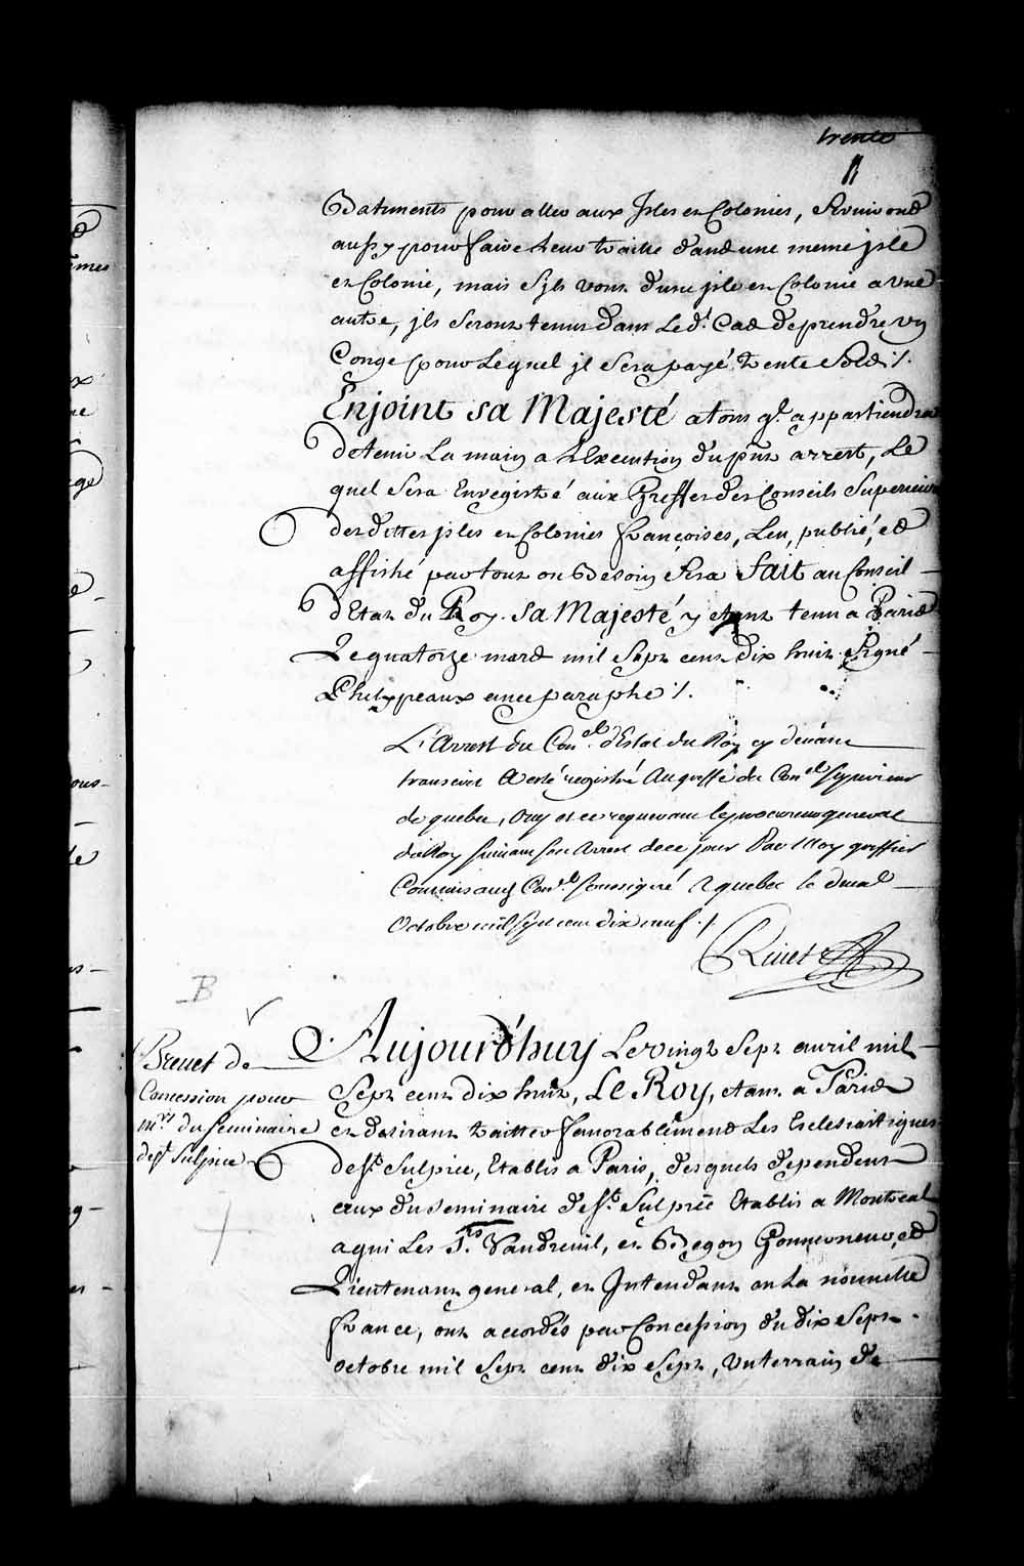 trente
Batiments pour aller aux Isles et Colonies, serviront
aussy pour faire leur traitte dans une meme jsle
et Colonie, mais sjls vont d'une jsle et Colonie a une
autre, jls seront tenus dans Led.t Cas de prendre un
Congé pour Lequel jl sera payé trente Sols %.
Enjoint sa Majesté a tous q.l appartiendra
de tenir La main a L'Execution du pnt arrest, Le
quel sera Enregistré aux Greffes des Conseils Superieurs
desdittes jsles et Colonies françoises, Leu, publié, et
affiché partout ou Besoin sera Fait au Conseil
d'Etat du Roy. Sa Majesté y etant tenu a Paris
Le quatorze mars mil Sept cent dix huit. Signé
Phelypeaux avec paraphe %.
L'Arrest du Con.el d'Estat du Roy cy devant
transcrit a esté registré au greffe du Con.el superieur
de quebec, Ouy et ce requerant le procureur general
du Roy suivant son Arrest de ce jour Par Moy greffier
Commis aud Con.el soussigné a quebec le deux
Octobre mil sept cent dix neuf %
Rivet
B
Brevet de
Concession pour
m.rs du Seminaire
de S.t Sulpice
Aujourd'huy Le vingt Sept avril mil
Sept cent dix huit, Le Roy, etant a Paris
et desirant traitter favorablement Les Eclesiastiques
de S.t Sulpice, Etablis a Paris, desquels dependent
ceux du seminaire de S.t Sulpice Etablis a Montreal
a qui Les S.rs Vaudreuil, et Begon Gouverneur, et
Lieutenant general, et Intendant en La nouvelle
france, ont accordés par Concession du dix Sept
octobre mil Sept cent dix Sept, un terrain de